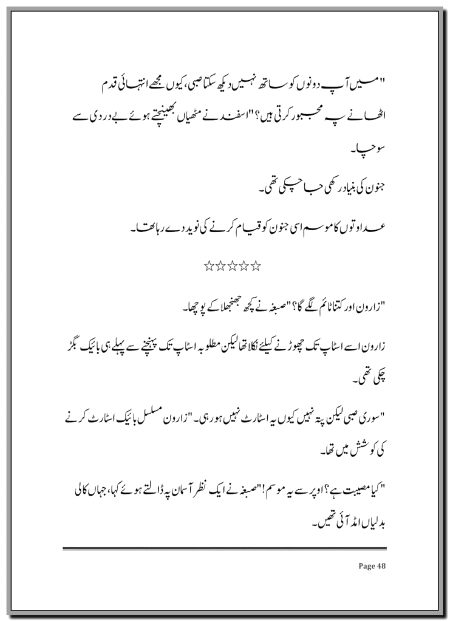 "میں آپ دونوں کو ساتھ نہیں دیکھ سکتا صبی، کیوں مجھے انتہائی قدم
اٹھانے پہ مجبور کرتی ہیں؟" اسفند نے مٹھیاں بھینچتے ہوئے بے دردی سے
سوچا۔
جنون کی بنیاد رکھی جا چکی تھی۔
عداوتوں کا موسم اسی جنون کو قیام کرنے کی نوید دے رہا تھا۔
☆☆☆☆☆
"زارون اور کتنا ٹائم لگے گا؟" صبغہ نے کچھ جھنجھلا کے پوچھا۔
زارون اسے اسٹاپ تک چھوڑنے کیلئے نکلا تھا لیکن مطلوبہ اسٹاپ تک پہنچنے سے پہلے ہی بائیک بگڑ
چکی تھی۔
"سوری صبی لیکن پتہ نہیں کیوں یہ اسٹارٹ نہیں ہو رہی۔" زارون مسلسل بائیک اسٹارٹ کرنے
کی کوشش میں تھا۔
"کیا مصیبت ہے؟ اوپر سے یہ موسم!" صبغہ نے ایک نظر آسمان پہ ڈالتے ہوئے کہا، جہاں کالی
بدلیاں امڈ آئی تھیں۔
Page 48